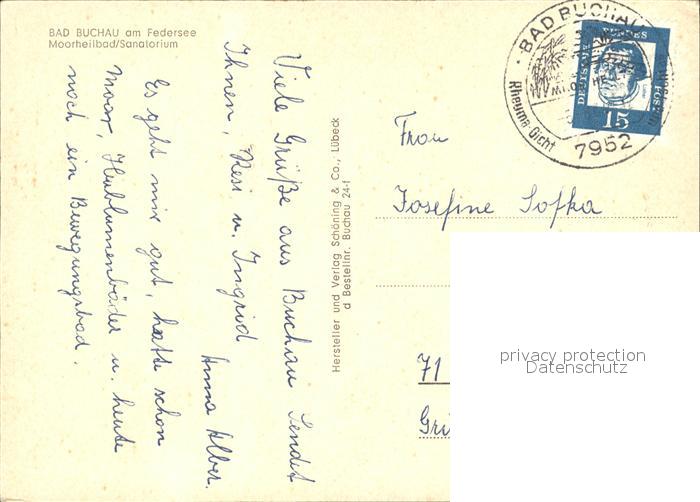 BAD BUCHAU am Federsee
Moorheilbad/Sanatorium
Viele Grüße aus Buchau sendet
Ihnen, Resi u. Ingrid
Anna Alber.
Es geht mir gut, hatte schon
Moor, Heublumenbäder u. heute
noch ein Bewegungsbad.
Hersteller und Verlag Schöning & Co., Lübeck
d Bestellnr. Buchau 24-f
BAD BUCHAU
Rheuma-Gicht
7952
DEUTSCHE BUNDESPOST
15
Frau
Josefine Sofka
71
privacy protection
Datenschutz